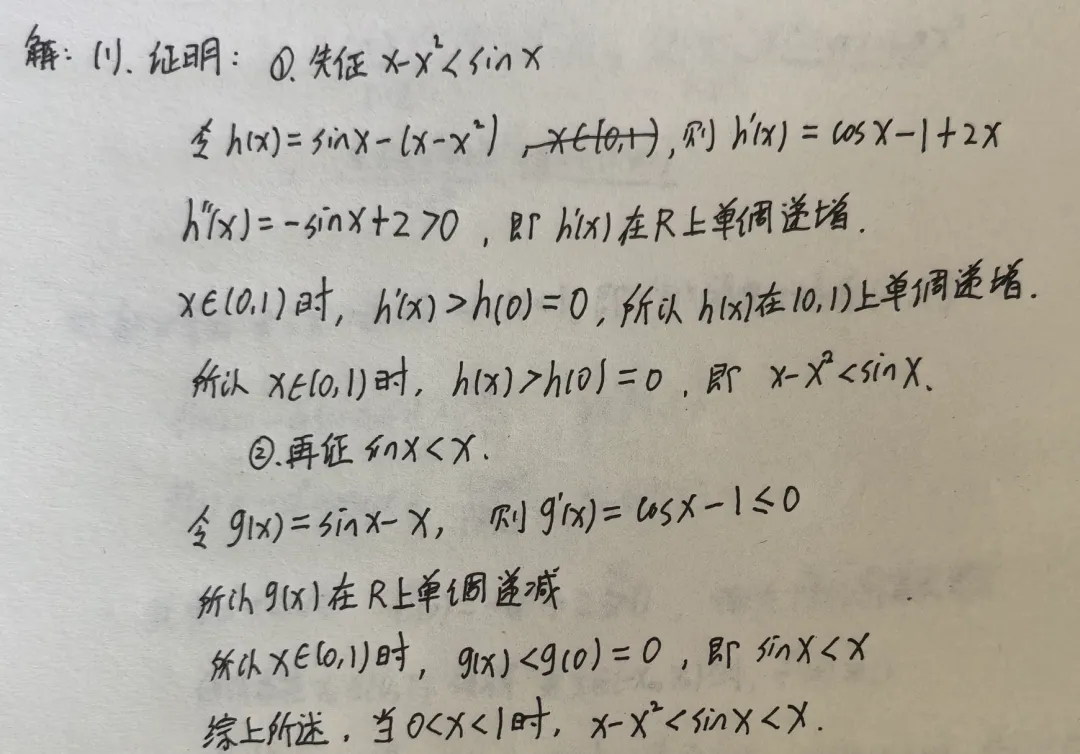 解：(1). 证明：①. 先证 x-x²<sinx
令 h(x)=sinx-(x-x²), x∈(0,1), 则 h'(x)=cosx-1+2x
h''(x)=-sinx+2>0, 即 h'(x)在R上单调递增.
x∈(0,1)时, h'(x)>h(0)=0, 所以 h(x)在(0,1)上单调递增.
所以 x∈(0,1)时, h(x)>h(0)=0, 即 x-x²<sinx.
②. 再证 sinx<x.
令 g(x)=sinx-x, 则 g'(x)=cosx-1≤0
所以 g(x)在R上单调递减
所以 x∈(0,1)时, g(x)<g(0)=0, 即 sinx<x
综上所述, 当 0<x<1时, x-x²<sinx<x.